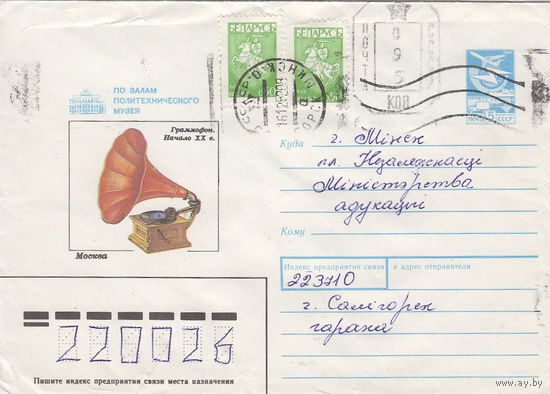 БЕЛАРУСЬ БЕЛАРУСЬ
ПОЧТА
0
9
5
КОП
ПОЧТА СССР
ПО ЗАЛАМ
ПОЛИТЕХНИЧЕСКОГО
МУЗЕЯ
Граммофон.
Начало XX в.
Москва
Куда г. Мінск
пл. Незалежнасці
Міністэрства
адукацыі
Кому
Индекс предприятия связи и адрес отправителя
223710
г. Салігорск
220026
Пишите индекс предприятия связи места назначения
www.ay.by